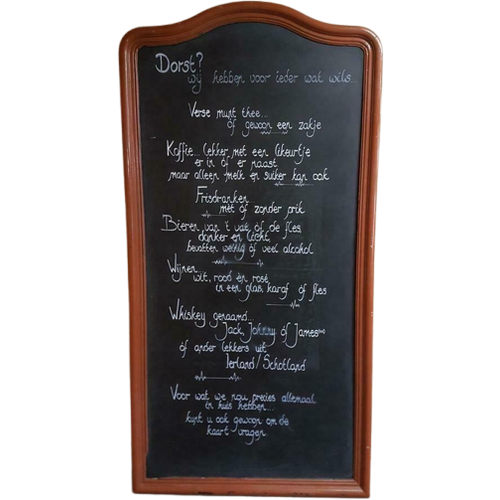 Dorst?
wij hebben voor ieder wat wils...
Verse munt thee...
of gewoon een zakje
Koffie lekker met een likeurtje
er in óf er naast
maar alleen melk en suiker kan ook
Frisdranken
mét óf zonder prik
Bieren van 't vat óf de fles
donker en licht,
bevatten weinig óf veel alcohol
Wijnen
wit, rood en rosé
in een glas, karaf óf fles
Whiskey genaamd...
Jack, Johnny óf James
óf ander lekkers uit
Ierland/Schotland
Voor wat we nou precies allemaal
in huis hebben...
kunt u ook gewoon om de
kaart vragen